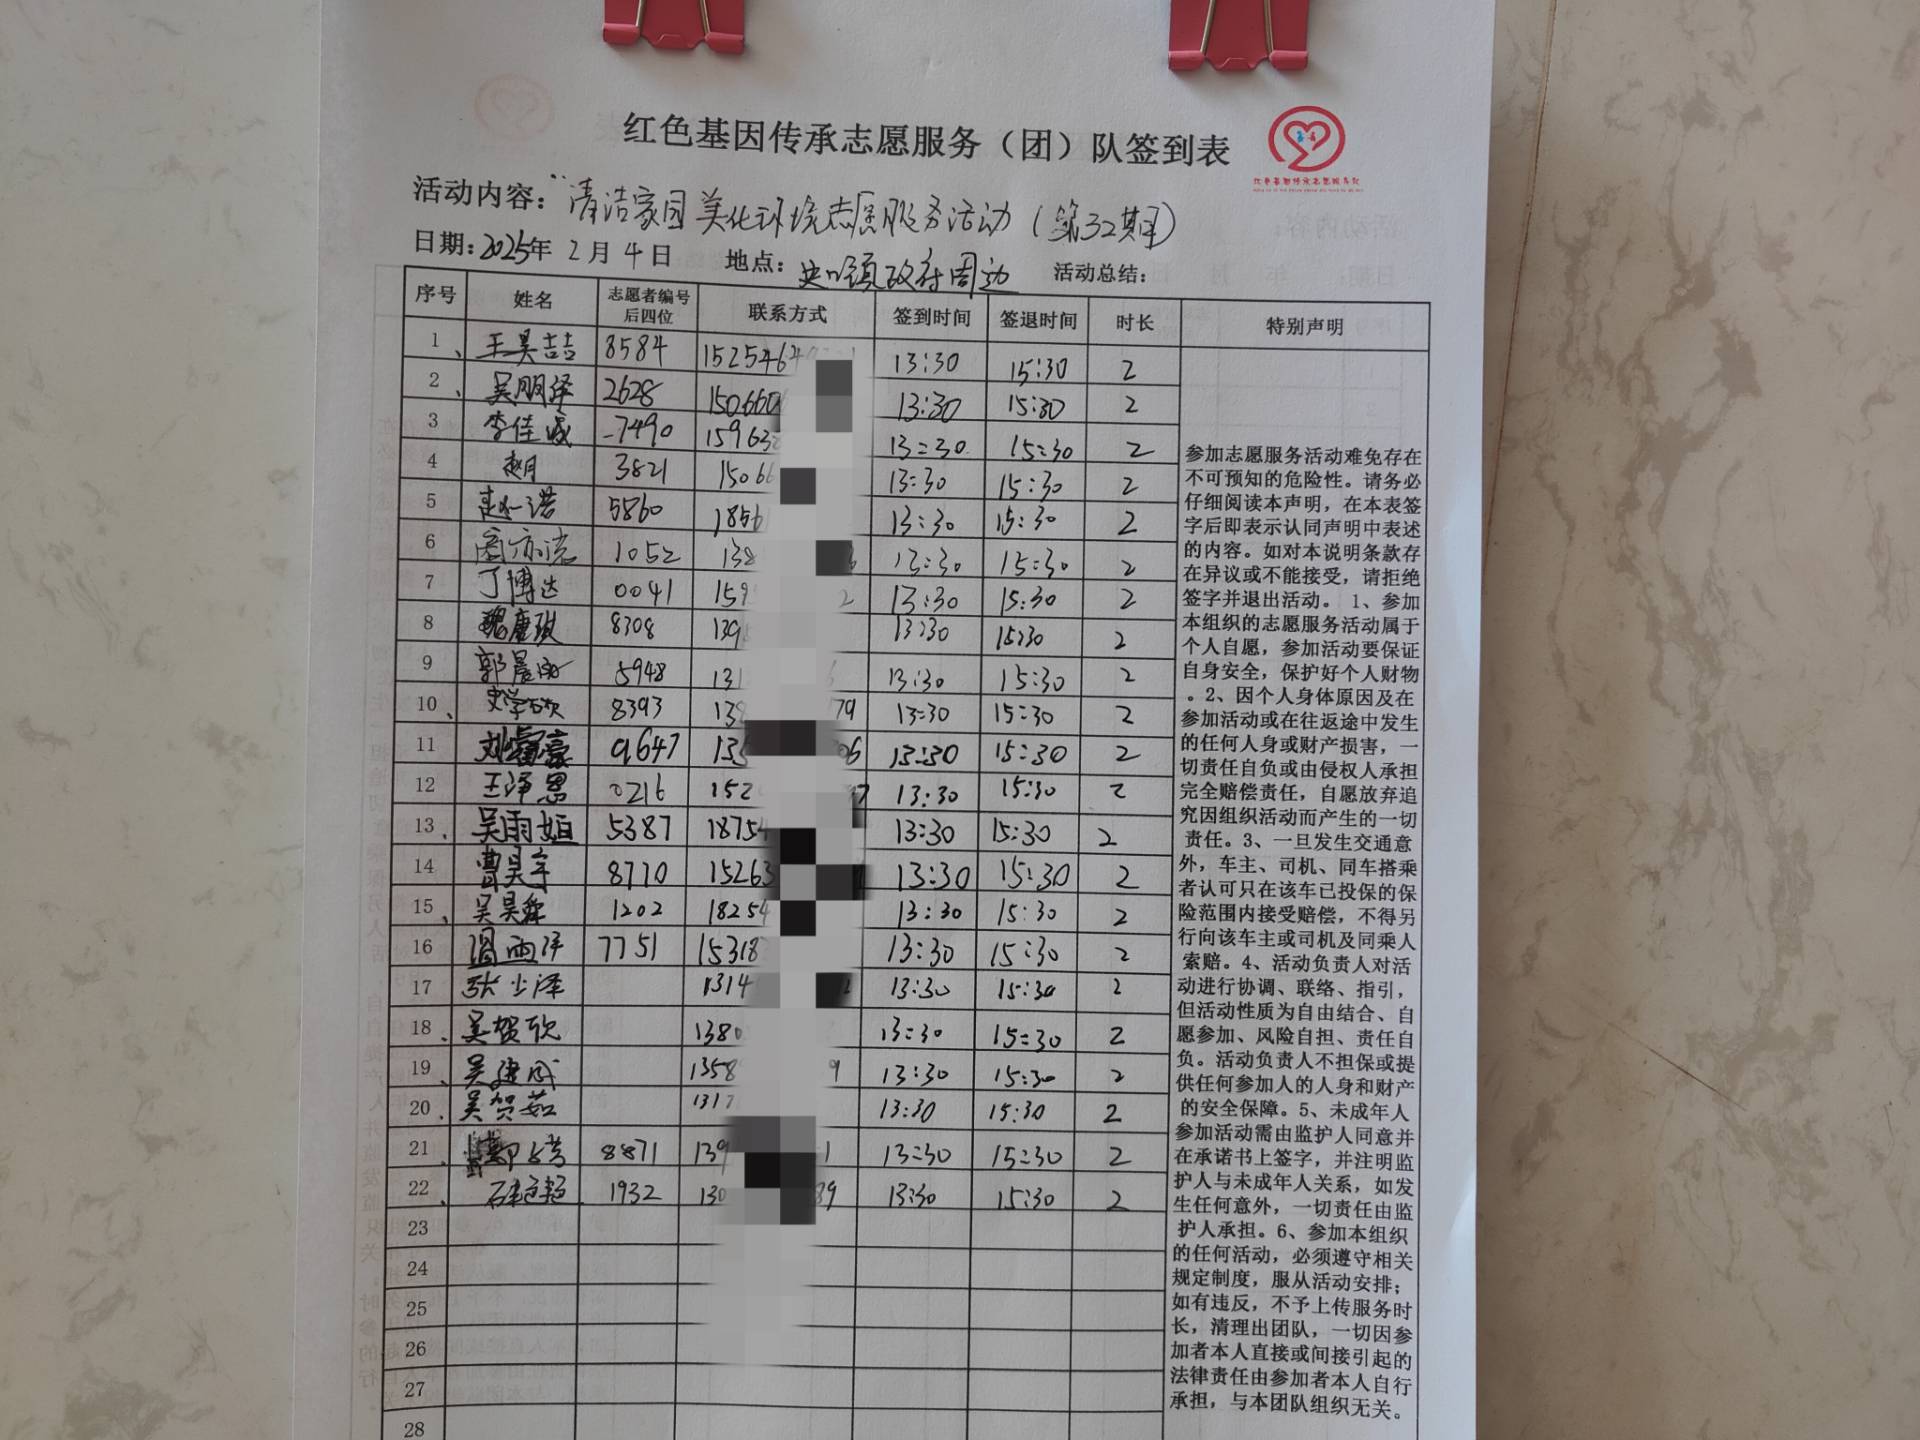 红色基因传承志愿服务（团）队签到表
活动内容：“清洁家园美化环境志愿服务活动（第32期）
日期：2025年 2月 4日 地点：史口镇政府周边 活动总结：
序号 姓名 志愿者编号后四位 联系方式 签到时间 签退时间 时长 特别声明
1、 王昊喆 8584 1525464 13:30 15:30 2
2、 吴朋泽 2628 150660 13:30 15:30 2
3 李佳诚 -7490 15963 13:30 15:30 2
4 赵月 3821 15066 13:30 15:30 2
5 赵一诺 5860 1856 13:30 15:30 2
6 1052 138 13:30 15:30 2
7 丁博达 0041 159 2 13:30 15:30 2
8 魏康琪 8308 139 13:30 15:30 2
9 郭晨 5948 131 13:30 15:30 2
10、 史学欣 8393 138 79 13:30 15:30 2
11 刘睿豪 9647 135 06 13:30 15:30 2
12 王泽恩 0216 152 7 13:30 15:30 2
13、 吴雨姮 5387 18754 13:30 15:30 2
14 曹昊宇 8770 15263 13:30 15:30 2
15、 吴昊 1202 18254 13:30 15:30 2
16 雨泽 7751 15318 13:30 15:30 2
17 张少泽 1314 13:30 15:30 2
18、 吴贺欣 1380 13:30 15:30 2
19、 吴建成 1358 9 13:30 15:30 2
20、 吴贺茹 1317 13:30 15:30 2
21、 8871 139 1 13:30 15:30 2
22、 1932 130 39 13:30 15:30 2
23
24
25
26
27
28
参加志愿服务活动难免存在
不可预知的危险性。请务必
仔细阅读本声明，在本表签
字后即表示认同声明中表述
的内容。如对本说明条款存
在异议或不能接受，请拒绝
签字并退出活动。1、参加
本组织的志愿服务活动属于
个人自愿，参加活动要保证
自身安全，保护好个人财物
。2、因个人身体原因及在
参加活动或在往返途中发生
的任何人身或财产损害，一
切责任自负或由侵权人承担
完全赔偿责任，自愿放弃追
究因组织活动而产生的一切
责任。3、一旦发生交通意
外，车主、司机、同车搭乘
者认可只在该车已投保的保
险范围内接受赔偿，不得另
行向该车主或司机及同乘人
索赔。4、活动负责人对活
动进行协调、联络、指引，
但活动性质为自由结合、自
愿参加、风险自担、责任自
负。活动负责人不担保或提
供任何参加人的人身和财产
的安全保障。5、未成年人
参加活动需由监护人同意并
在承诺书上签字，并注明监
护人与未成年人关系，如发
生任何意外，一切责任由监
护人承担。6、参加本组织
的任何活动，必须遵守相关
规定制度，服从活动安排；
如有违反，不予上传服务时
长，清理出团队，一切因参
加者本人直接或间接引起的
法律责任由参加者本人自行
承担，与本团队组织无关。